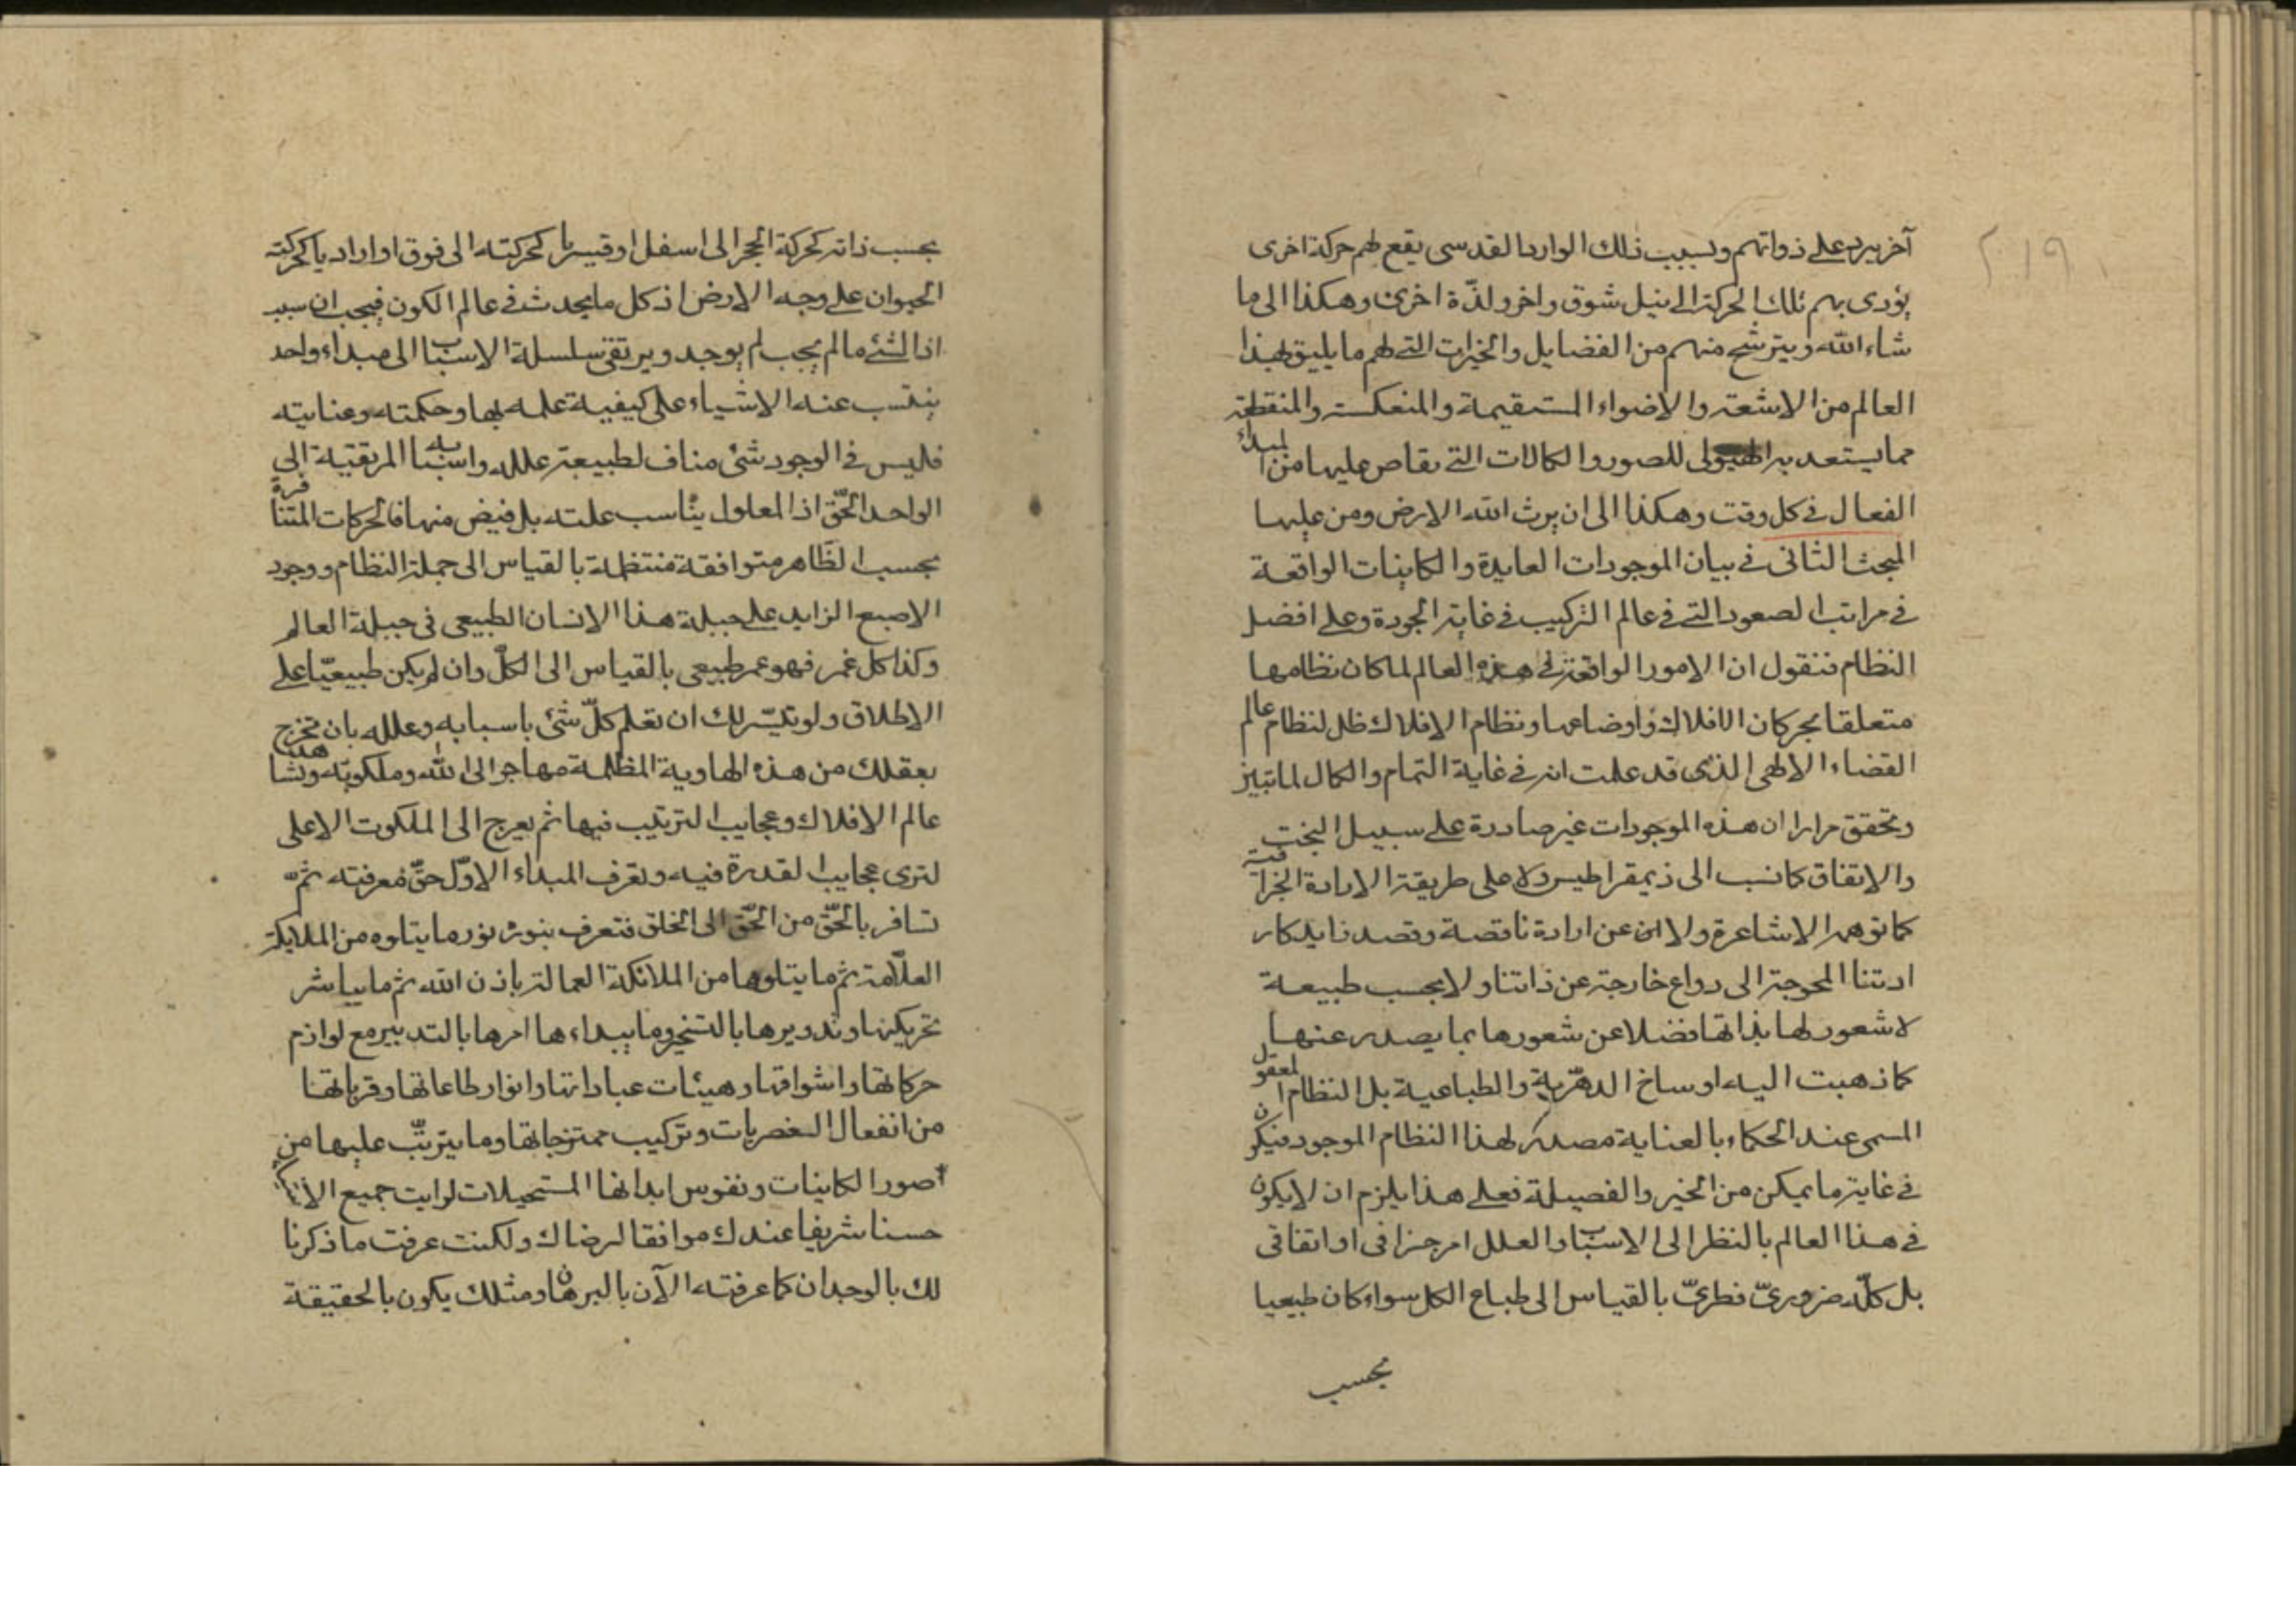 ٢١٩
آخر يرد على ذواتهم وبسبب ذلك الوارد القدسى يقع لهم حركة اخرى
يؤدى بهم تلك الحركة الى نيل شوق واخر ولذّة اخرى وهكذا الى ما
شاء الله ويترشح منهم من الفضايل والخيرات التى لهم ما يليق بهذا
العالم من الاشعة والاضواء المستقيمة والمنعكسة والمنقطعة
مما يستعد به الهيولى للصور والكمالات التى يفاض عليها من المبداء
الفعال فى كل وقت وهكذا الى ان يرث الله الارض ومن عليها
المبحث الثانى فى بيان الموجودات العايدة والكاينات الواقعة
فى مراتب الصعود التى فى عالم التركيب فى غاية الجودة وعلى افضل
النظام فنقول ان الامور الواقعة فى هذه العالم لما كان نظامها
متعلقا بحركات الافلاك واوضاعها ونظام الافلاك ظل لنظام عالم
القضاء الالهى الذى قد علمت انه فى غاية التمام والكمال لما تبين
وتحقق مرارا ان هذه الموجودات غير صادرة على سبيل البخت
والاتفاق كما نسب الى ذيمقراطيس ولا على طريقة الارادة الجزافية
كما توهمه الاشاعرة ولا عن ارادة ناقصة وقصد زايد كار
ادتنا المحوجة الى دواع خارجة عن ذاتنا ولا بحسب طبيعة
لا شعور لها بذاتها فضلا عن شعورها بما يصدر عنها
كما ذهبت اليه اوساخ الدهرية والطباعية بل النظام المعقول
المسمى عند الحكماء بالعناية مصدر لهذا النظام الموجود فيكون
فى غاية ما يمكن من الخير والفضيلة فعلى هذا يلزم ان لا يكون
فى هذا العالم بالنظر الى الاسباب والعلل امر جزافى او اتفاقى
بل كلّه ضرورىّ فطرىّ بالقياس الى طباع الكل سواء كان طبيعيا
بحسب
بحسب ذاته كحركة الحجر الى اسفل او قسريا كحركته الى فوق او اراديا كحركة
الحيوان على وجه الارض اذ كل ما يحدث فى عالم الكون فيجب ان سبب
اذا الشئ ما لم يجب لم يوجد ويرتقى سلسلة الاسباب الى مبداء واحد
ينشعب عنه الاشياء على كيفية علمه بها وحكمته وعنايته
فليس فى الوجود شئ مناف لطبيعة علله واسبابه المرتقية الى
الواحد الحّق اذ المعلول يناسب علته بل فيض منها فالحركات المتنافرة
بحسب الظّاهر متوافقة منتظمة بالقياس الى جملة النظام ووجود
الاصبع الزايد على جبلة هذا الانسان الطبيعى فى جبلة العالم
وكذا كل عمر فهو عمر طبيعى بالقياس الى الكلّ وان لم يكن طبيعيّا على
الاطلاق ولو تيسّر لك ان تعلم كلّ شئ باسبابه وعلله بان تخرج
بعقلك من هذه الهاوية المظلمة مهاجرا الى الله وملكوته وتشاهد
عالم الافلاك وعجايب الترتيب فيها ثم يعرج الى الملكوت الاعلى
لترى عجايب القدرة فيه وتعرف المبداء الاوّل حقّ معرفته ثم
تسافر بالحّق من الحّق الى الخلق فتعرف بنوره نور ما يتلوه من الملايكة
العلّامة ثم ما يتلوها من الملائكة العمالة باذن الله ثم ما يباشر
تحريكها وتدويرها بالتسخير وما يبداءها امرها بالتدبير مع لوازم
حركاتها واشواقها وهيئات عباداتها وانوار طاعاتها وقرباتها
من انفعال العنصريات وتركيب ممتزجاتها وما يترتّب عليها من
صور الكاينات ونفوس ابدانها المستحيلات لرايت جميع الاشياء
حسنا شريفا عندك موافقا لرضاك ولكنت عرفت ما ذكرنا
لك بالوجدان كما عرفته الآن بالبرهان ومثلك يكون بالحقيقة